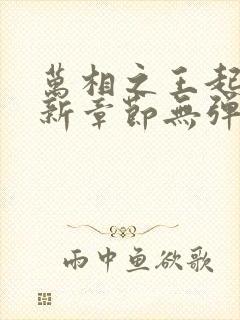 萬相之王起
新章節無彈
雨中魚欲歌